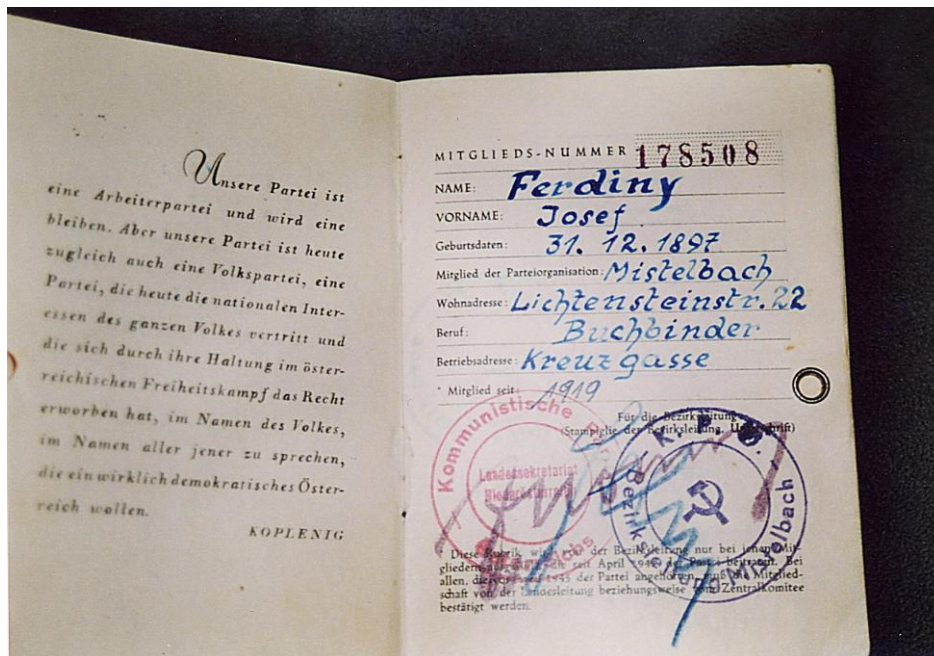 Unsere Partei ist
eine Arbeiterpartei und wird eine
bleiben. Aber unsere Partei ist heute
zugleich auch eine Volkspartei, eine
Partei, die heute die nationalen Inter-
essen des ganzen Volkes vertritt und
die sich durch ihre Haltung im öster-
reichischen Freiheitskampf das Recht
erworben hat, im Namen des Volkes,
im Namen aller jener zu sprechen,
die ein wirklich demokratisches Öster-
reich wollen.
KOPLENIG
MITGLIEDS-NUMMER 178508
NAME: Ferdiny
VORNAME: Josef
Geburtsdaten: 31. 12. 1897
Mitglied der Parteiorganisation: Mistelbach
Wohnadresse: Lichtensteinstr. 22
Beruf: Buchbinder
Betriebsadresse: Kreuzgasse
* Mitglied seit: 1919
Für die Bezirksleitung
(Stampiglie der Bezirksleitung, Unterschrift)
Kommunistische
Landessekretariat
Niederösterreich
K. P. Ö.
Bezirksleitung Mistelbach
* Diese Rubrik wird von der Bezirksleitung nur bei jenen Mit-
gliedern die seit April 1945 der Partei beitraten. Bei
allen, die vor 1945 der Partei angehörten, muß die Mitglied-
schaft von der Landesleitung beziehungsweise vom Zentralkomitee
bestätigt werden.